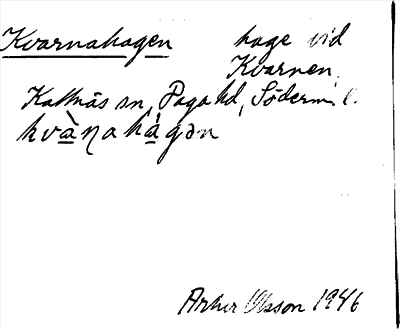 Kvarnahagen hage vid
Kvarnen.
Kattnäs sn, Daga hd, Söderm. l.
kvàṇahágən
Arthur Olsson 1946